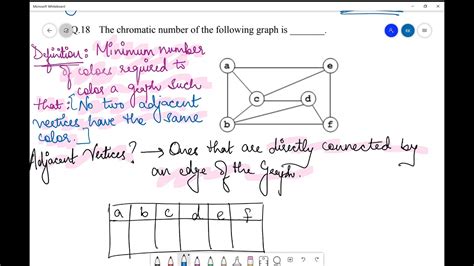 Microsoft Whiteboard
Q.18 The chromatic number of the following graph is ________.
Definition: Minimum number
of colors required to
color a graph such
that: [No two adjacent
vertices have the same
color.]
a e
c d
b f
Adjacent Vertices? → Ones that are directly connected by
an edge of the Graph.
a b c d e f